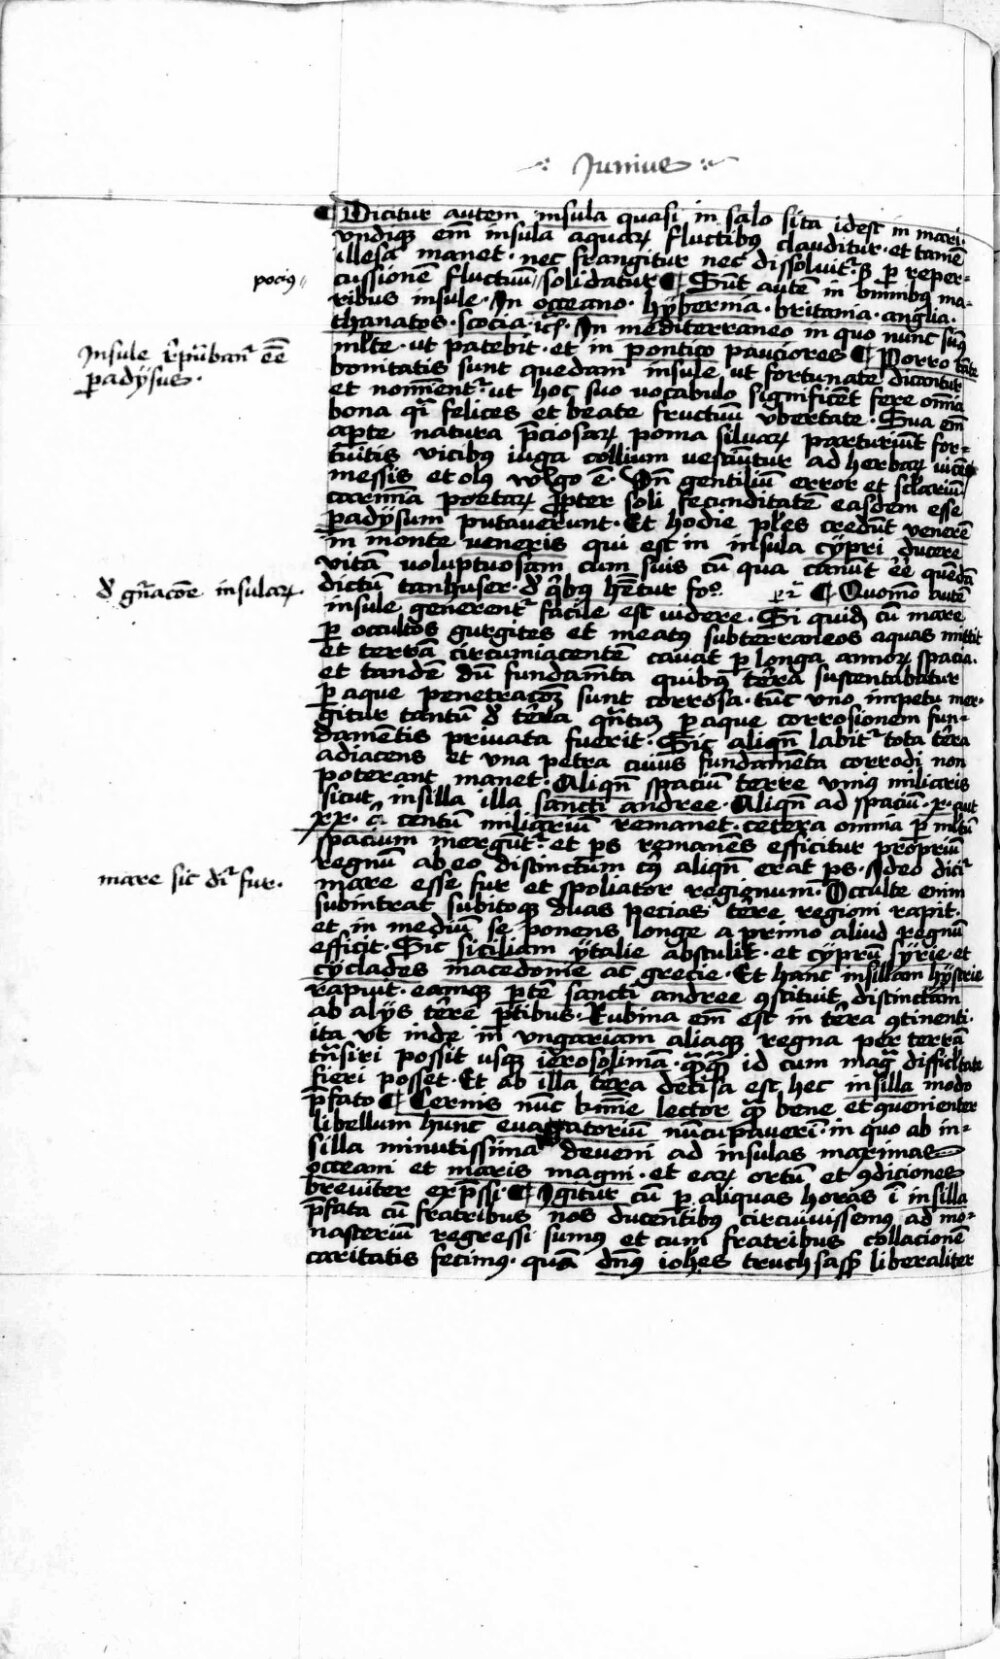 Junius
¶ Dicitur autem insula quasi in salo sita idest in mari.
vndiqꝫ em̄ insula aquaꝝ fluctibꝰ clauditur. et tamē
illesa manet. nec frangitur nec dissoluit᷑. sꝫ ꝑ reper-
pociꝰ
cussionē fluctuū solidatur ¶ Sūt autē in omībus ma-
ribus insule. In occeano. hybernia. britania. anglia.
thanatos. scocia. ⁊c̄. In mediterraneo in quo nunc sumꝰ
Insule r̄putaban᷑ eē̄
ml̄te. ut patebit. et in pontico pauciores ¶ Porro tāte
padysus.
bonitatis sunt quedam insule ut fortunate dicantur
et nomēent᷑. ut hoc suo uocabulo significēt fere om̄ia
bona qꝛ felices et beate fructuū vbertate. Sua em̄
apte natura p̄ciosaꝝ poma siluaꝝ parturiūt for-
tuitis vicibus iuga collium vestiūtur ad herbaꝝ vicē
messis et olꝰ vulgo ē. Vn̄ gentiliū error et sc̄lariū
carmina poetaꝝ ꝓpter soli fecunditatē easdem esse
padysum putauerunt. Et hodie pl̄es credūt venerē
in monte veneris qui est in insula cypri ducere
vitā uoluptuosam cum suis cū qua canūt eē̄ quēdā
đ gn̄acōe insulaꝝ.
dictū tanhuser. đ qͥbꝰ hētur foº. ¶ Quomō autē
insule generent᷑ facile est videre. Si quidē cū mare
ꝑ occultos gurgites et meatꝰ subterraneos aquas mittit
et terrā circumiacentē cauat ꝑ longa annoꝝ spacia.
et tandē dū fundamēta quibus tēra sustentabatur
ꝑ aque penetracōꝫ sunt corrosa. tūc vno impetu mer-
gitur tantū đ tēra qn̄tum ꝑ aque corrosionem fun-
damētis priuata fuerit. Sic aliqn̄ labit᷑ tota tēra
adiacens et vna petra cuius fundamēta corrodi non
poterant manet. Aliqn̄ spaciū terre vnius miliaris
sicut insilla illa sancti andree. Aliqn̄ ad spaciū .x. aut
xx. centum miliariū remanet. cetera omnia ꝑ ml̄tū
spacium mergūt᷑. et ps remanēs efficitur propriū
regnū ab eo distinctum cꝰ aliqn̄ erat ps. Adeo dicit᷑
mare sic dr̄ fur.
mare esse fur et spoliator regionum. Occulte enim
subintrat subitoqꝫ duas pecias tēre regioni rapit.
et in mediū se ponens longe a primo aliud regnū
efficit. Sic siciliam ytalie abstulit. et cyprū syrie. et
cyclades macedonie ac grecie. Et hanc insillam hystrie
rapiut. eamqꝫ ptē sancti andree ꝯstituit distinctam
ab alijs tēre ptibus. Rubina em̄ est in tēra ꝯtinenti.
ita vt inde in vngariam aliaqꝫ regna per terrā
tn̄siri possit usqꝫ ierosolimā. id cum mag̃ difficl̄tate
fieri posset. Et ab illa tēra decisa est hec insilla modo
p̄fato ¶ Cernis nūc lector qꝫ bene et ꝯuenienter
libellum hunc euagatoriū nūcupauerī. in quo ab in-
silla minutissima deueni ad insulas maximas
occeani et maris magni. et eaꝝ ortū et ꝯdiciones
breuiter exp̄ssi. ¶ Igitur cū ꝑ aliquas horas ī insilla
p̄fata cū fratribus nos ducentibus circuiuissemus ad mo-
nasteriū regressi sumꝰ et cum fratribus collacionē
caritatis fecimꝰ. quā dn̄ꝰ ioh̄es truchsass liberaliter